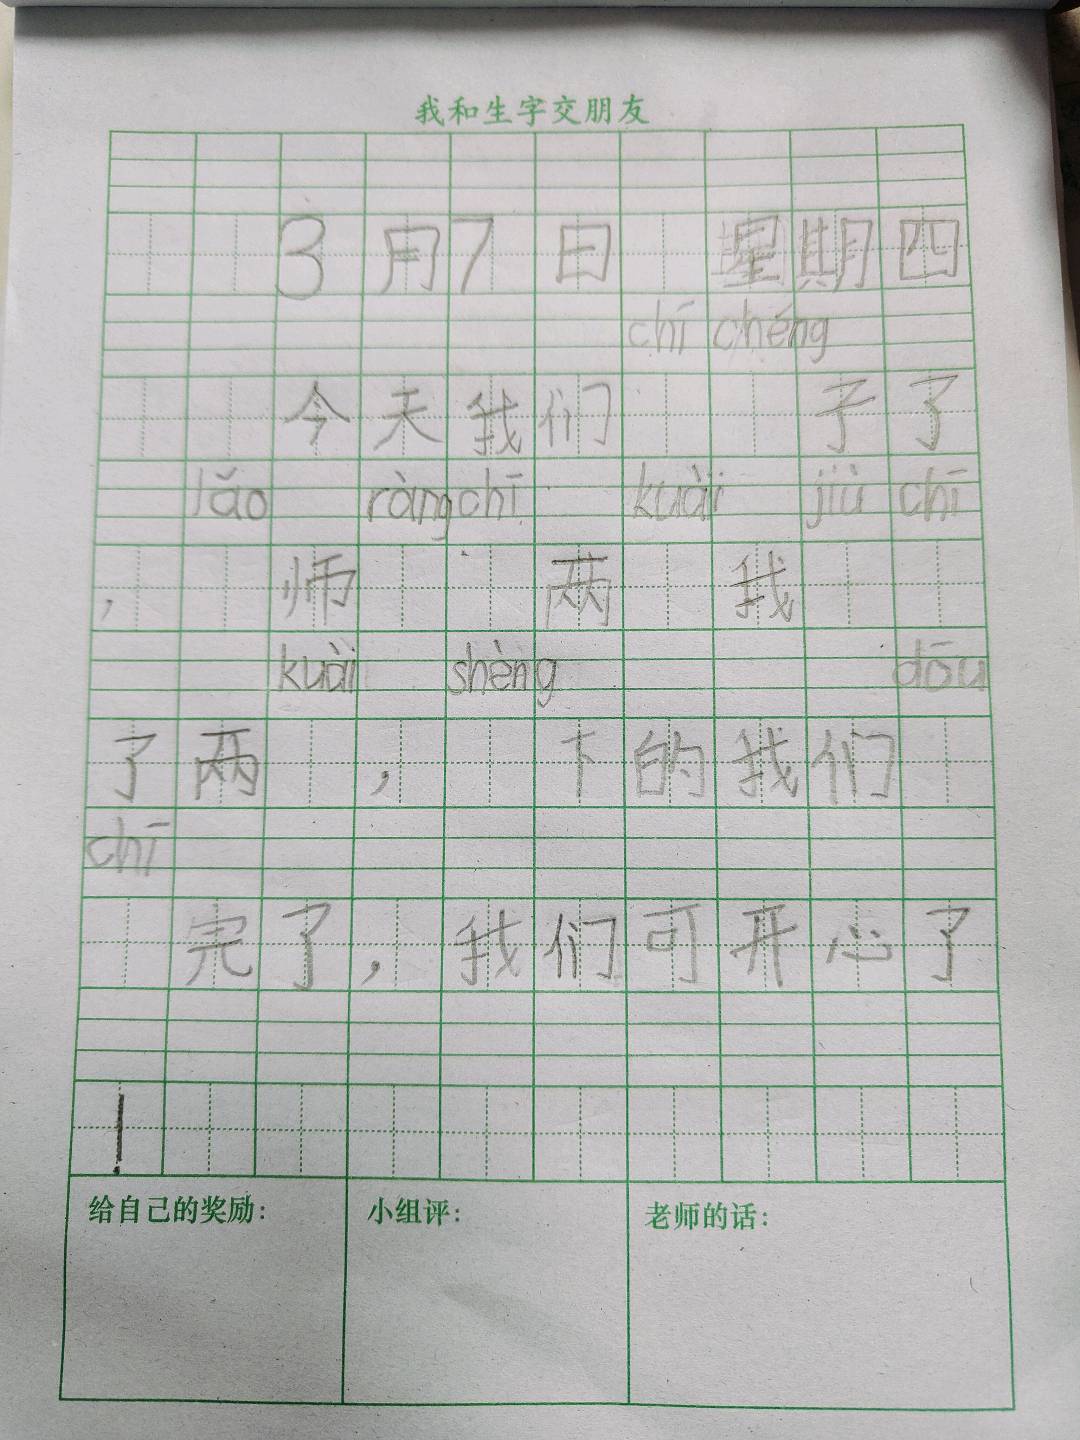 我和生字交朋友
3月7日 星期四
chī chéng
今天我们 子了
lǎo ràng chī kuài jiù chī
，师 两 我
kuài shèng dōu
了两 ， 下的我们
chī
完了，我们可开心了
！
给自己的奖励： 小组评： 老师的话：